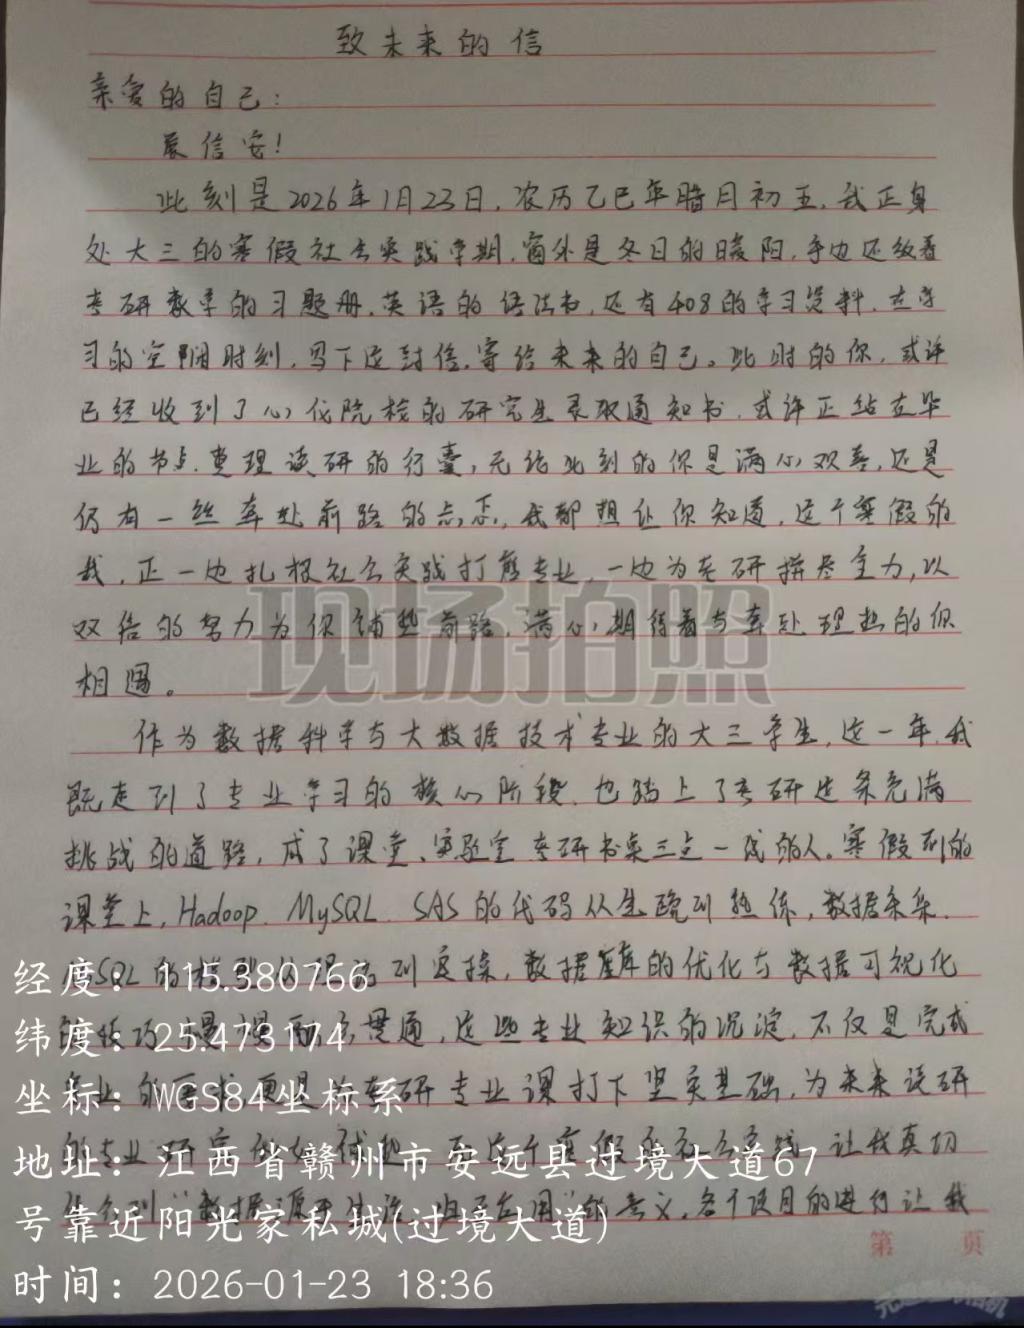 致未来的信
亲爱的自己：
展信安！
此刻是2026年1月23日，农历乙巳年腊月初五，我正身
处大三的寒假社会实践学期，窗外是冬日的暖阳，手边还放着
考研数学的习题册，英语的语法书，还有408的学习资料，在学
习的空闲时刻，写下这封信，寄给未来的自己。此时的你，或许
已经收到了心仪院校的研究生录取通知书，或许正站在毕
业的节点，整理读研的行囊，无论此刻的你是满心欢喜，还是
仍有一丝奔赴前路的忐忑，我都想让你知道，这个寒假的
我，正一边扎根社会实践打磨专业，一边为考研拼尽全力，以
双倍的努力为你铺垫前路，满心期待着与奔赴理想的你
相遇。
现场拍照
作为数据科学与大数据技术专业的大三学生，这一年，我
既走到了专业学习的核心阶段，也踏上了考研这条充满
挑战的道路，成了课堂、实验室、考研书桌三点一线的人。寒假到的
课堂上，Hadoop、MySQL、SAS的代码从生疏到熟练，数据采集、
SQL的 到实操，数据库的优化与数据可视化
的技巧 贯通，这些专业知识的沉淀，不仅是完成
业的 更是 考研专业课打下坚实基础，为未来读研
的专业研究 这个寒假的社会实践，让我真切
体会到“数据源于生活 应用”的意义，各个项目的进行让我
经度：115.380766
纬度：25.473174
坐标：WGS84坐标系
地址：江西省赣州市安远县过境大道67
号靠近阳光家私城(过境大道)
时间：2026-01-23 18:36
第 页